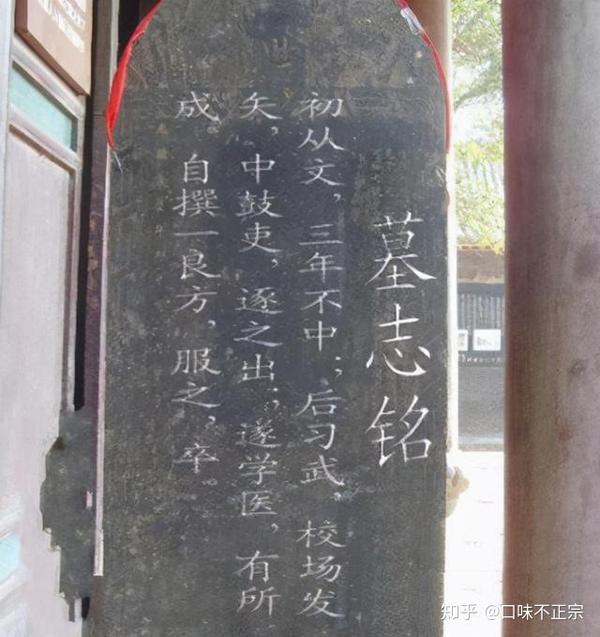 墓志铭
初从文，三年不中；后习武，校场发
矢，中鼓吏，逐之出；遂学医，有所
成。自撰一良方，服之，卒。
知乎 @口味不正宗